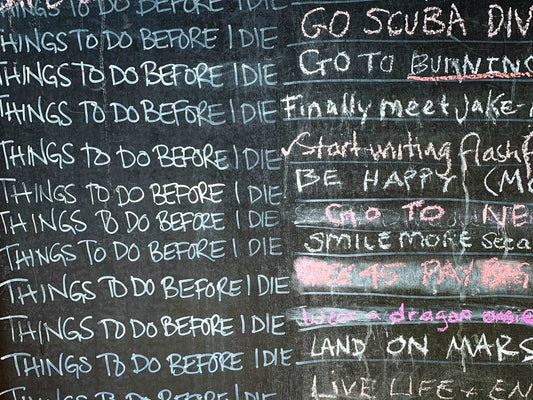 THINGS TO DO BEFORE I DIE GO SCUBA DIV
THINGS TO DO BEFORE I DIE GO TO BURNING
THINGS TO DO BEFORE I DIE
THINGS TO DO BEFORE I DIE Finally meet Jake-
THINGS TO DO BEFORE I DIE Start writing flash f
THINGS TO DO BEFORE I DIE BE HAPPY (MO
THINGS TO DO BEFORE I DIE GO TO NE
THINGS TO DO BEFORE I DIE SMILE MORE
THINGS TO DO BEFORE I DIE 45 PAY
THINGS TO DO BEFORE I DIE a dragon
THINGS TO DO BEFORE I DIE LAND ON MARS
THINGS TO DO BEFORE I DIE LIVE LIFE + EN